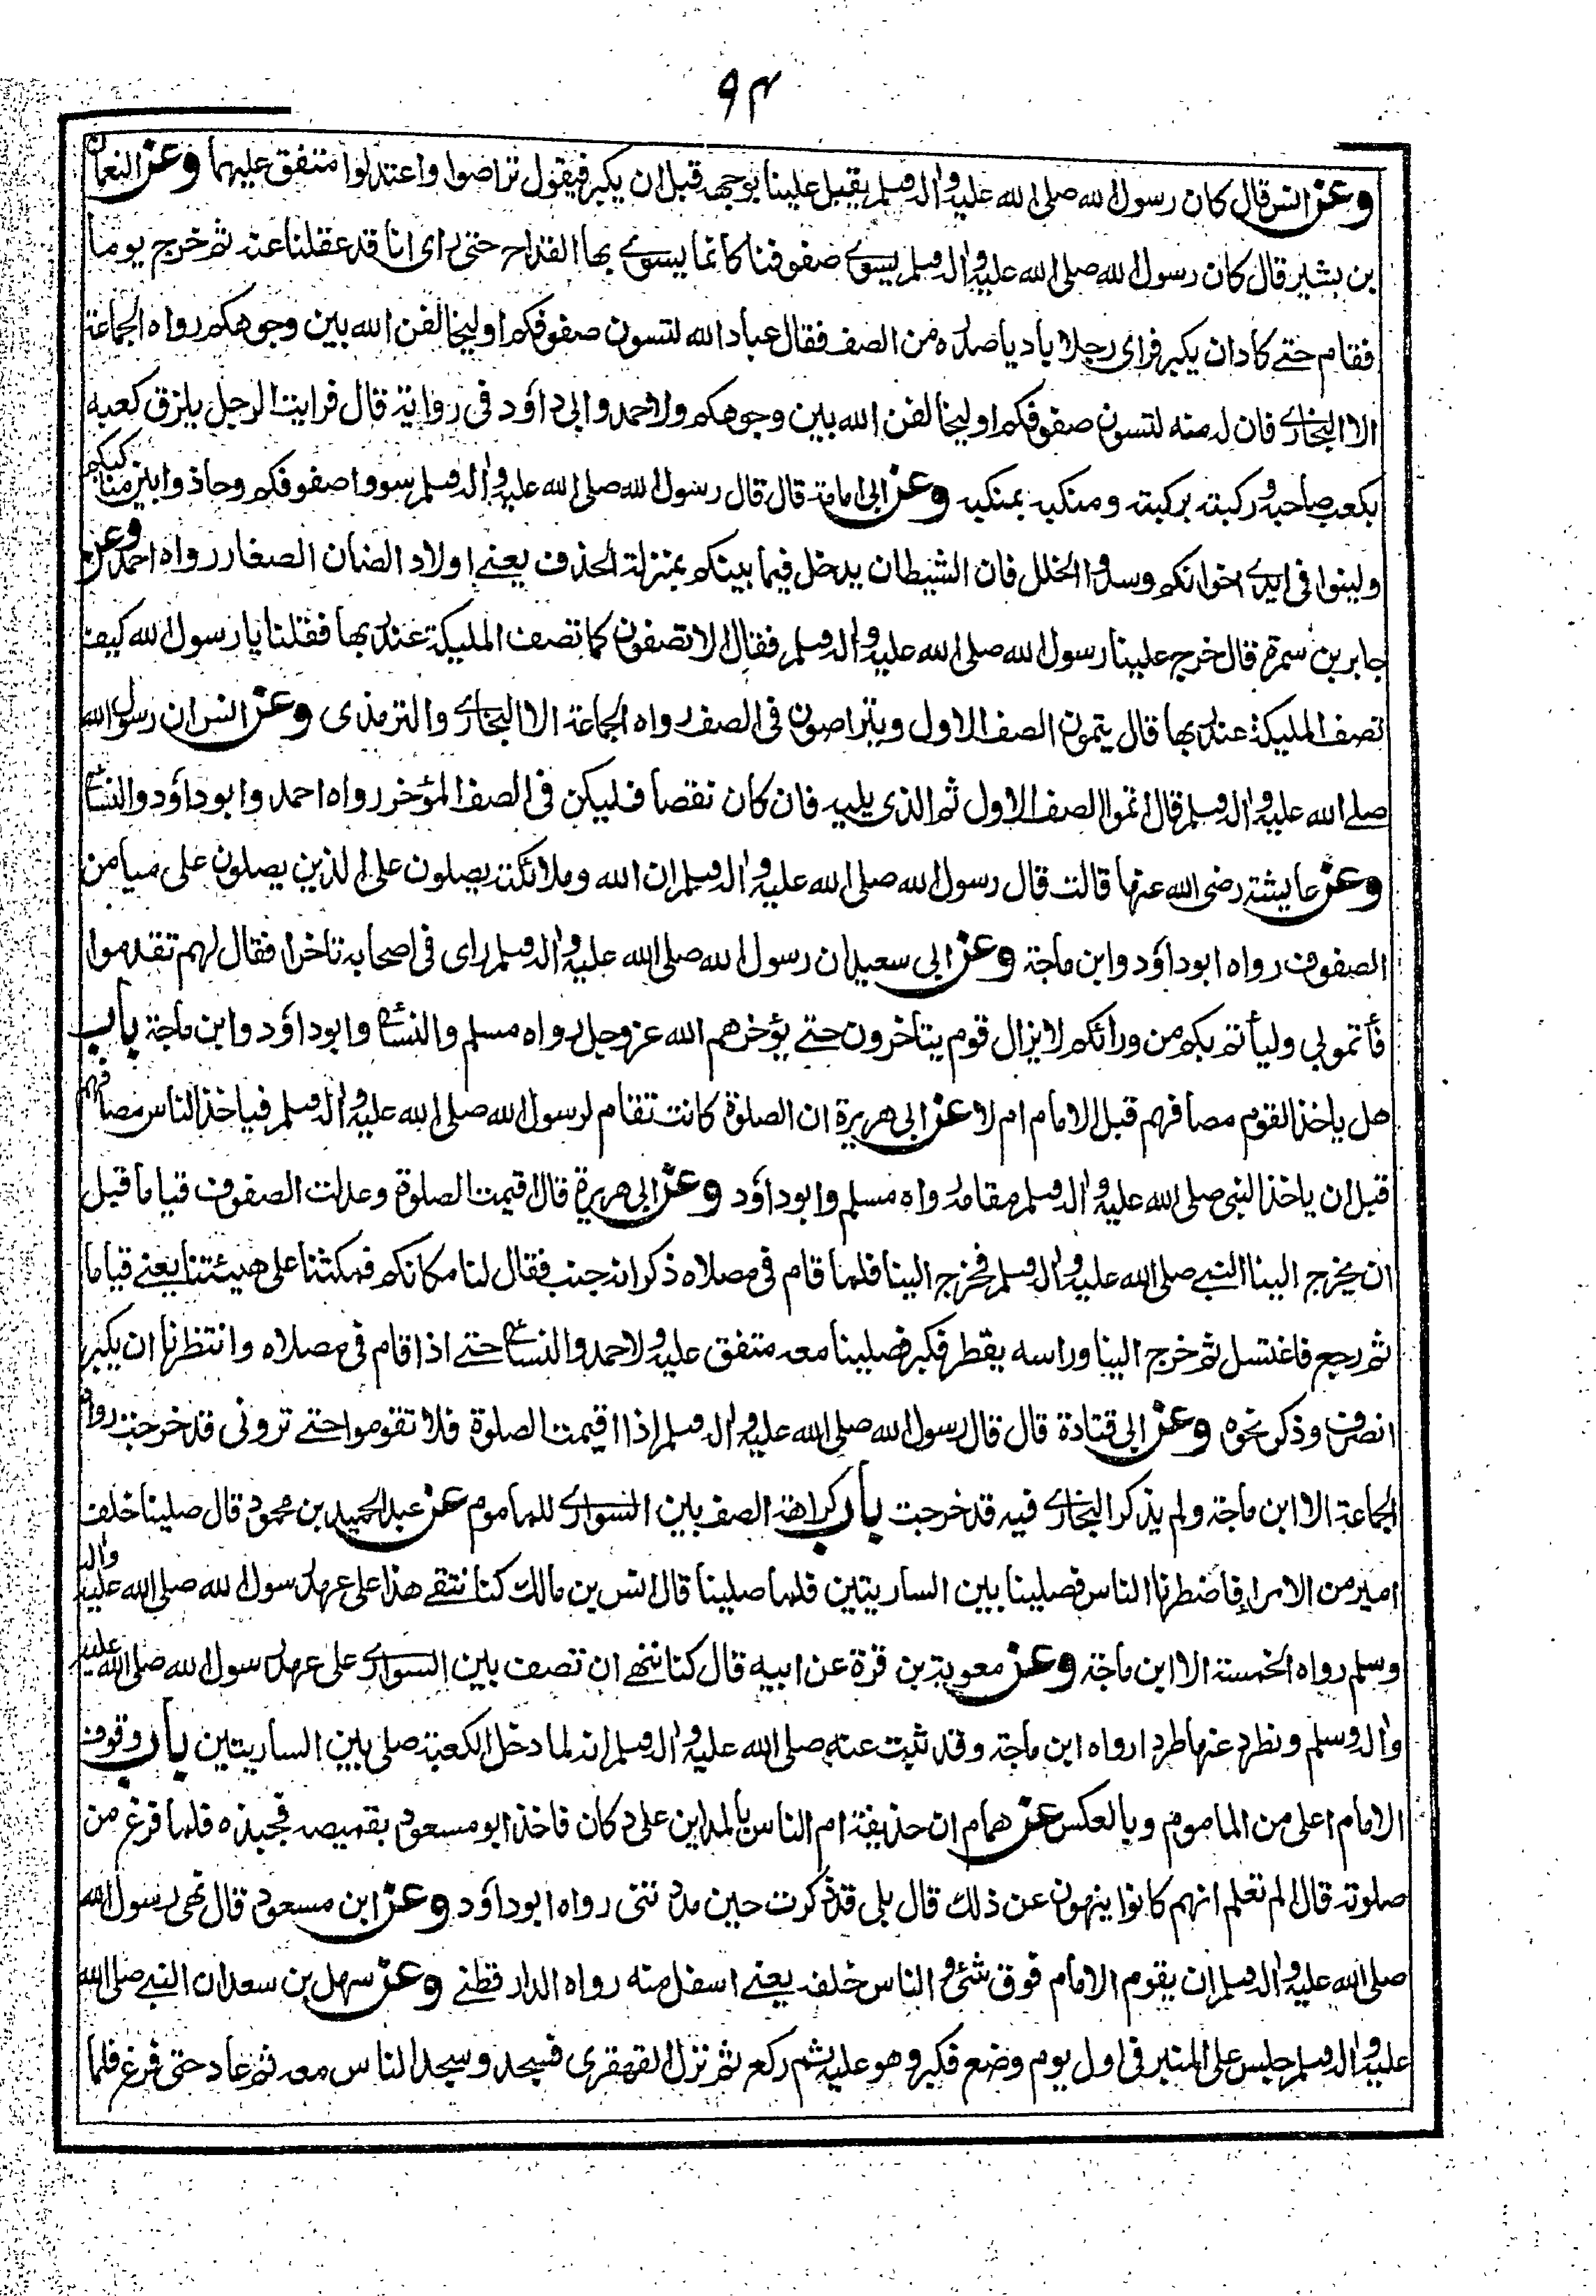 ٩٣
وعن انس قال كان رسول الله صلى الله عليه واله وسلم يقبل علينا بوجهه قبل ان يكبر فيقول تراصوا واعتدلوا متفق عليهما وعن النعمان
بن بشير قال كان رسول الله صلى الله عليه واله وسلم يسوي صفوفنا كانما يسوي بها القداح حتى راى انا قد عقلنا عنه ثم خرج يوما
فقام حتے كادان يكبر فراى رجلا باديا صدره من الصف فقال عباد الله لتسون صفوفكم او ليخالفن الله بين وجوهكم رواه الجماعة
الا البخاري فان له منه لتسون صفوفكم او ليخالفن الله بين وجوهكم ولاحمد وابي داؤد في رواية قال فرايت الرجل يلزق كعبه
بكعب صاحبه وركبته بركبته ومنكبه بمنكبه وعن ابي امامة قال قال رسول الله صلى الله عليه واله وسلم سووا صفوفكم وحاذوا بين مناكبكم
ولينوا في ايدي اخوانكم وسدوا الخلل فان الشيطان يدخل فيما بينكم بمنزلة الحذف يعنے اولاد الضان الصغار رواه احمد وعن
جابر بن سمرة قال خرج علينا رسول الله صلى الله عليه واله وسلم فقال الا تصفون كما تصف المليكة عند ربها فقلنا يا رسول الله كيف
تصف المليكة عند ربها قال يتمون الصف الاول ويتراصون في الصف رواه الجماعة الا البخاري والترمذى وعن انس ان رسول الله
صلے الله عليه واله وسلم قال اتموا الصف الاول ثم الذى يليه فان كان نقصا فليكن فى الصف المؤخر رواه احمد وابوداؤد والنسائے
وعن عايشة رضى الله عنها قالت قال رسول الله صلى الله عليه واله وسلم ان الله وملائكته يصلون على الذين يصلون على ميامن
الصفوف رواه ابوداؤد وابن ماجة وعن ابى سعيد ان رسول الله صلى الله عليه واله وسلم راى فى اصحابه تاخرا فقال لهم تقدموا
فأتموا بي وليأتم بكم من ورائكم لا يزال قوم يتاخرون حتے يؤخرهم الله عز وجل رواه مسلم والنسائے وابوداؤد وابن ماجة باب
هل ياخذ القوم مصافهم قبل الامام ام لا عن ابى هريرة ان الصلوة كانت تقام لرسول الله صلى الله عليه واله وسلم فياخذ الناس مصافهم
قبل ان ياخذ النبى صلى الله عليه واله وسلم مقامه رواه مسلم وابوداؤد وعن ابى هريرة قال اقيمت الصلوة وعدلت الصفوف قياما قبل
ان يخرج الينا النبے صلى الله عليه واله وسلم فخرج الينا فلما قام فى مصلاه ذكر انه جنب فقال لنا مكانكم فمكثنا على هيئتنا يعنے قياما
ثم رجع فاغتسل ثم خرج الينا وراسه يقطر فكبر فصلينا معه متفق عليه ولاحمد والنسائے حتے اذا قام فى مصلاه وانتظرنا ان يكبر
انصرف وذكر نحوه وعن ابى قتادة قال قال رسول الله صلى الله عليه واله وسلم اذا اقيمت الصلوة فلا تقوموا حتے ترونى قد خرجت رواه
الجماعة الا ابن ماجة ولم يذكر البخاري فيه قد خرجت باب كراهة الصف بين السواري للماموم عن عبد الحميد بن محمود قال صلينا خلف
امير من الامراء فاضطرنا الناس فصلينا بين الساريتين فلما صلينا قال انس بن مالك كنا نتقے هذا على عهد رسول الله صلى الله عليه واله
وسلم رواه الخمسة الا ابن ماجة وعن معوية بن قرة عن ابيه قال كنا ننهے ان نصف بين السواري على عهد رسول الله صلى الله عليه
واله وسلم ونطرد عنها طردا رواه ابن ماجة وقد ثبت عنه صلى الله عليه واله وسلم انه لما دخل الكعبة صلى بين الساريتين باب وقوف
الامام اعلى من الماموم وبالعكس عن همام ان حذيفة ام الناس بالمداين على دكان فاخذ ابو مسعود بقميصه فجبذه فلما فرغ من
صلوته قال الم تعلم انهم كانوا ينهون عن ذلك قال بلى قد ذكرت حين مددتنى رواه ابوداؤد وعن ابن مسعود قال نهى رسول الله
صلى الله عليه واله وسلم ان يقوم الامام فوق شئ والناس خلفه يعنے اسفل منه رواه الدارقطنے وعن سهل بن سعد ان النبے صلى الله
عليه واله وسلم جلس على المنبر فى اول يوم وضع فكبر وهو عليه ثم ركع ثم نزل القهقرى فسجد وسجد الناس معه ثم عاد حتى فرغ فلما